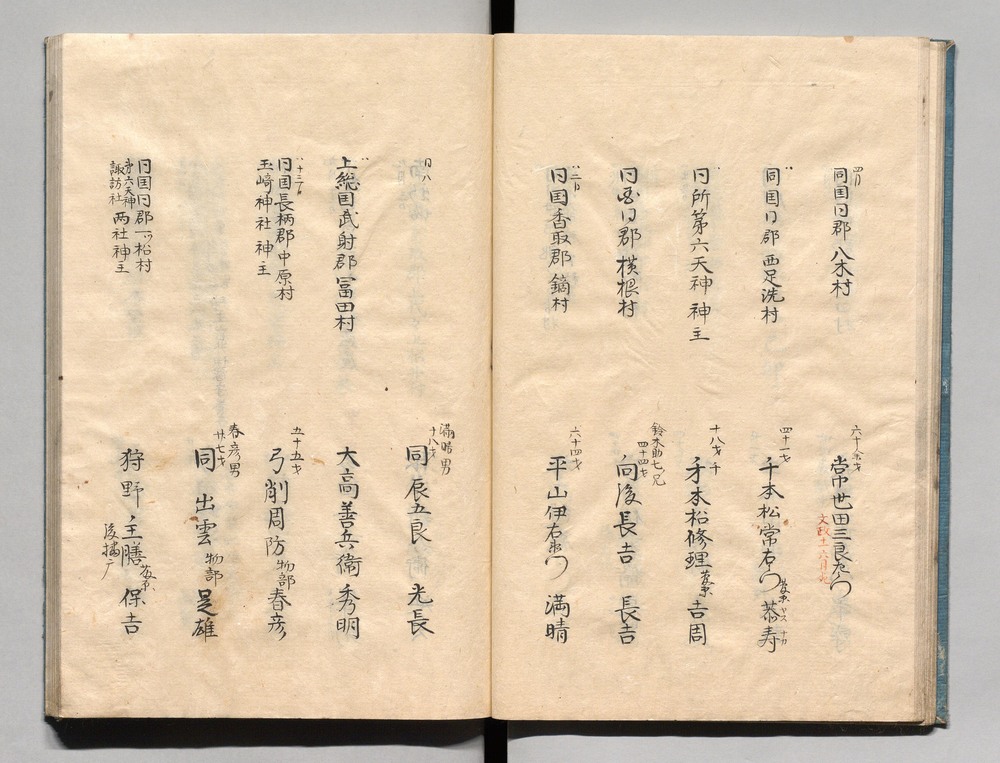 四月
同国同郡八木村
六十六才
常世田三良左衛門
文政十 六月九
〃
同国同郡西足洗村
四十一才
千本松常右衛門 藤原 恭寿
ヤス
〃
同所第六天神神主
十八才
千
矛本松修理 藤原 吉周
同国同郡横根村
鈴木助七兄
四十四才
向後長吉 長吉
〃二日
同国香取郡鏑村
六十四才
平山伊右衛門 満晴
同八
満晴男
十八才
同辰五良 光長
〃
上総国武射郡冨田村
大高善兵衛 秀明
〃十三日
同国長柄郡中原村
玉﨑神社神主
五十五才
弓削周防 物部 春彦
春彦男
廿七才
同出雲 物部 足雄
同国同郡一ツ松村
第六天神
諏訪社
両社神主
狩野主膳 藤原 保吉
後播广